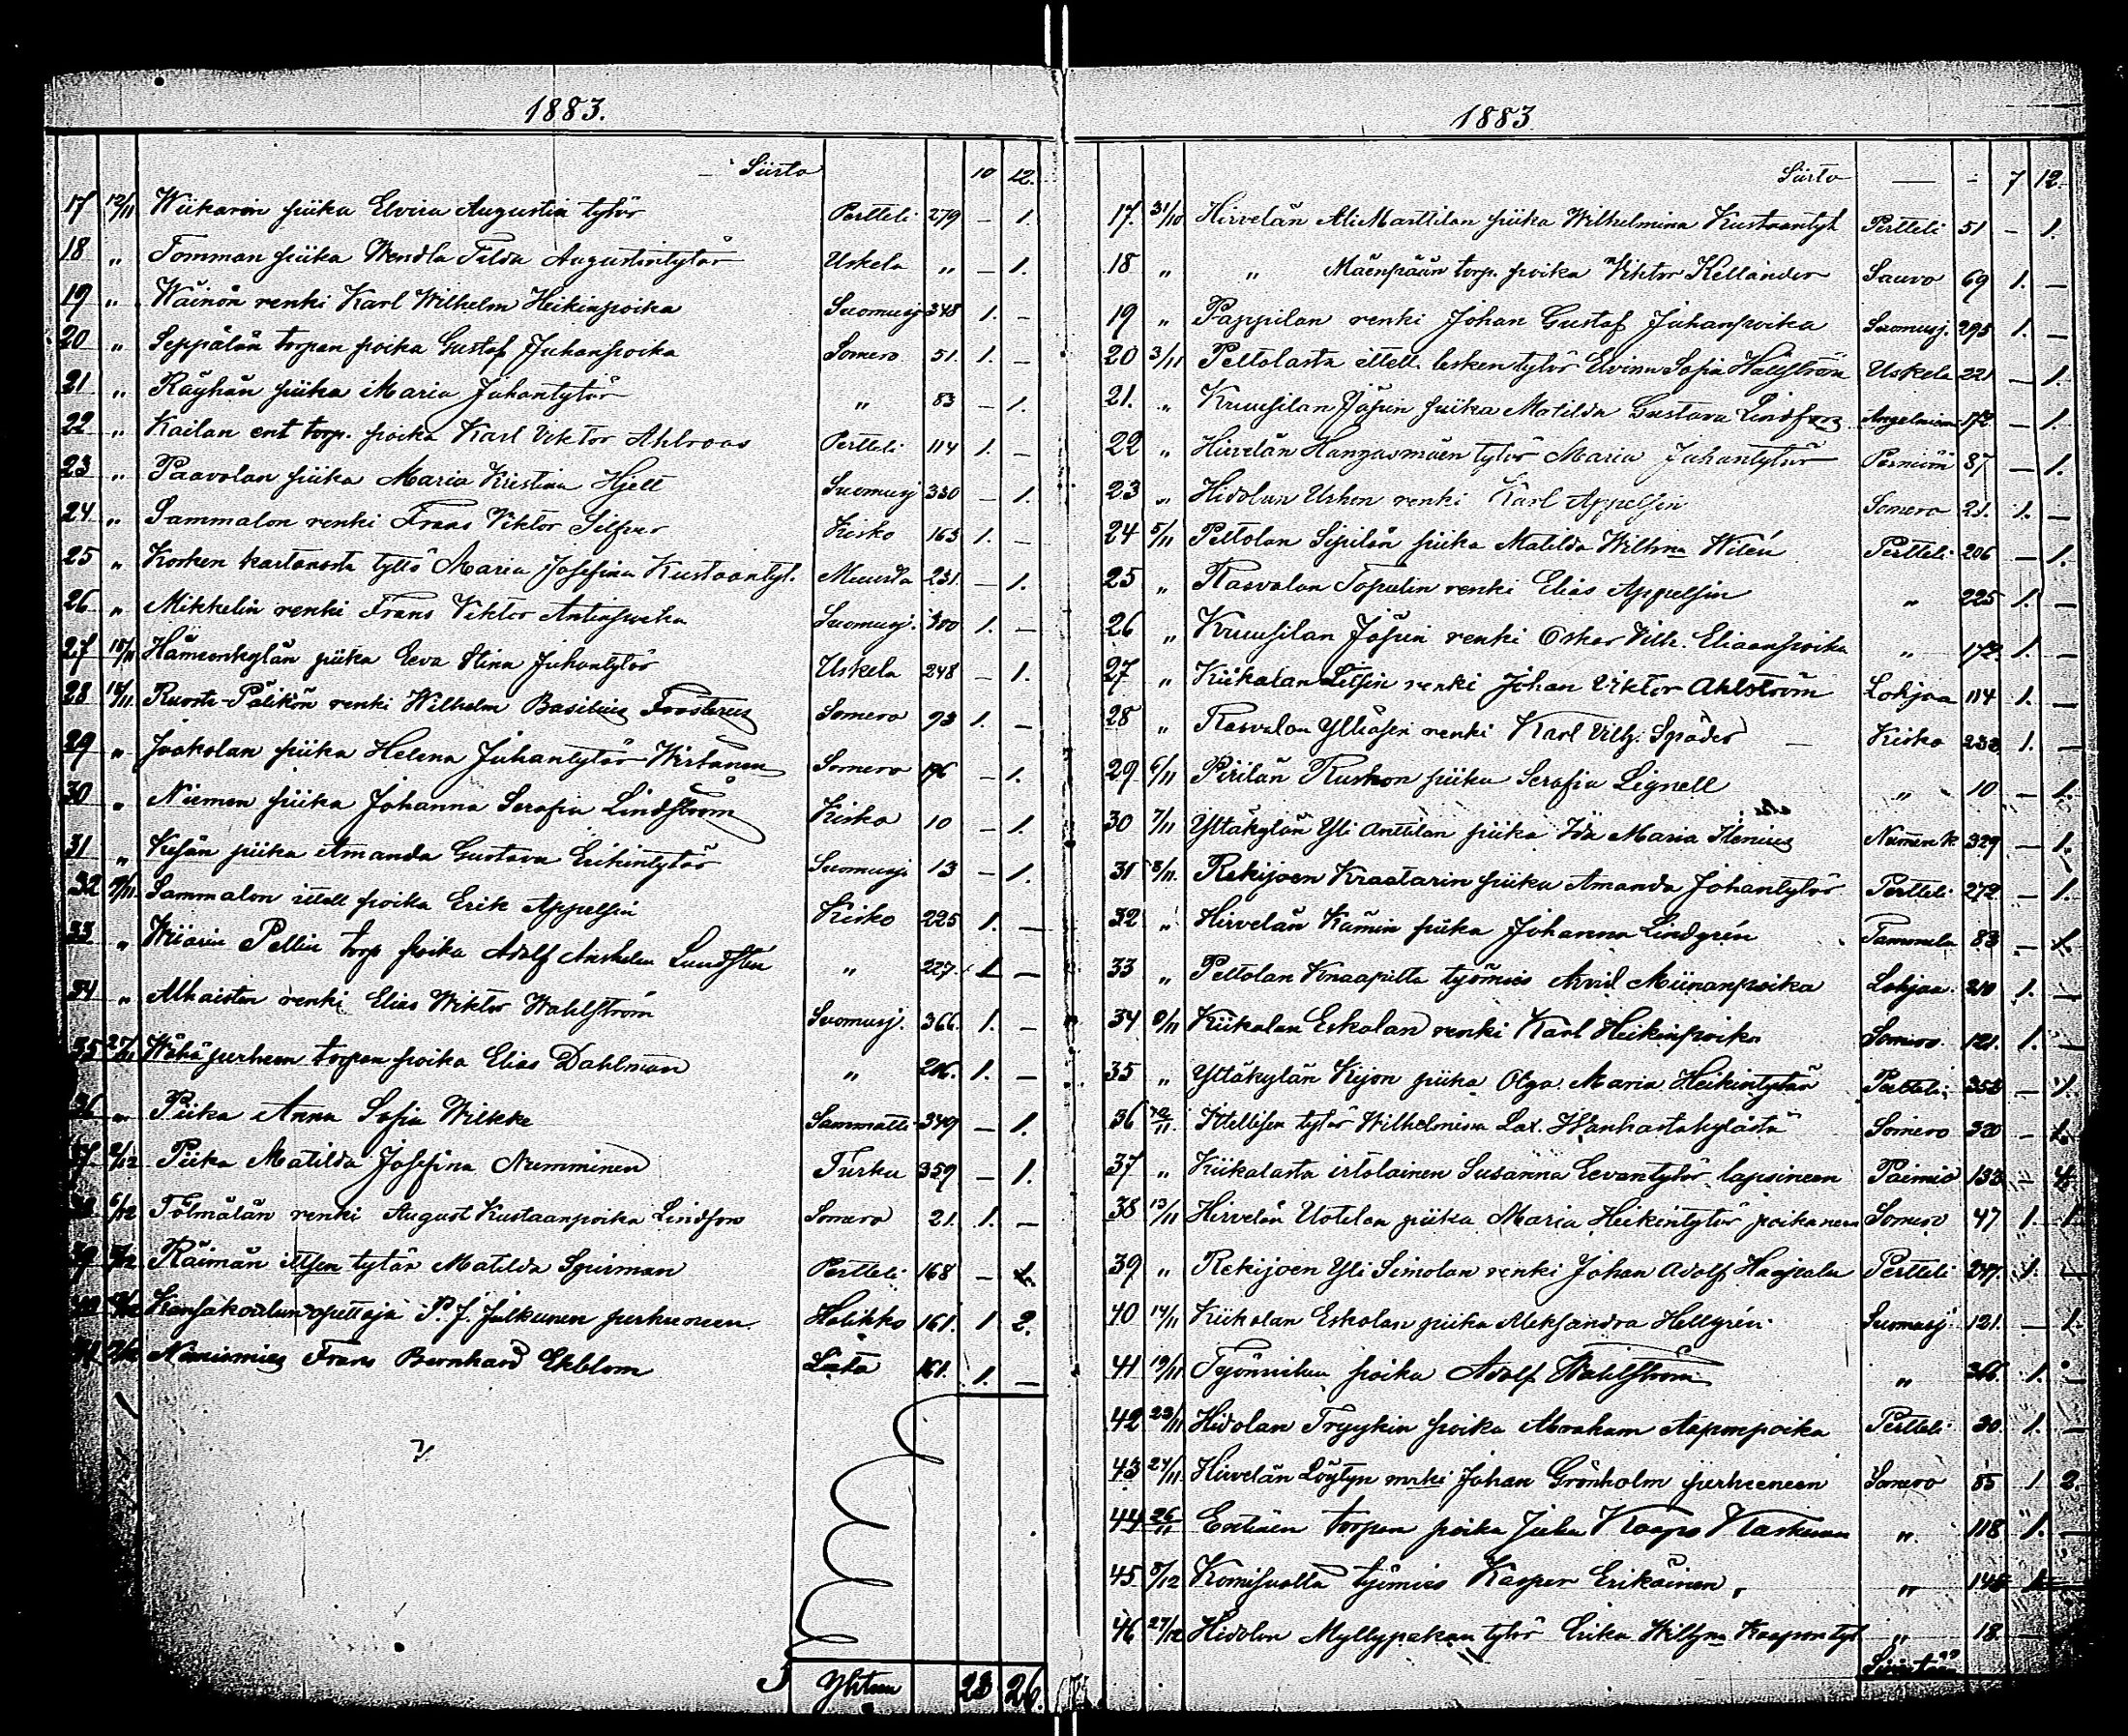 1883.
Siirto 10 12.
17 12/11 Wiikarin piika Elviira Augustin tytär Pertteli 279 — 1.
18 „ Tomman piika Wendla Tilda Augustintytär Uskela „ — 1.
19 „ Wäinön renki Karl Wilhelm Heikinpoika Suomusj 348 1. —
20 „ Seppälän torpan poika Gustaf Juhanpoika Somero 51. 1. —
21 „ Räyhän piika Maria Juhantytär „ 83 — 1.
22 „ Kailan ent torp. poika Karl Viktor Ahlroos Pertteli 114 1. —
23 „ Paavolan piika Maria Kristina Hjelt Suomusj 330 — 1.
24 „ Sammalon renki Frans Viktor Silfver Kisko 163 1. —
25 „ Kosken kartanosta tyttö Maria Josefina Kustaantyt. Muurla 231. — 1.
26 „ Mikkelin renki Frans Viktor Antinpoika Suomusj. 300 1. —
27 Hämeenkylän piika Eeva Stina Juhantytär Uskela 248 — 1.
28 Ruorti-Pälikön renki Wilhelm Basilius Somero 93 1. —
29 „ Jaakolan piika Helena Juhantytär Wirtanen Somero 196 — 1.
30 „ Niemen piika Johanna Serafia Lindström Kisko 10 — 1.
31 „ Kesän piika Amanda Gustava Erikintytär Suomusj. 13 — 1.
32 Sammalon itell poika Erik Appelsin Kisko 225 1. —
33 „ Pellin torp poika Adolf Anshelm Lundsten „ 227. 1 —
34 „ Alhaisten renki Elias Wiktor Wahlström Suomusj. 366. 1. —
35 27/11 Wähäperheen torpan poika Elias Dahlman „ 216. 1. —
36 „ Piika Anna Sofia Wilkke Sammatti 349 — 1.
37. 2/12 Piika Matilda Josefina Numminen Turku 359 — 1.
38 6/12 Tölmälän renki August Kustaanpoika Lindfors Somero 21. 1. —
39 Räimän ittsen tytär Matilda Spirman Pertteli 168 — 1.
40 Kansakoulunopettaja P. J. Julkunen perheneen. Halikko 161. 1 2.
41 Nuorimies Frans Bernhard Ekblom 161. 1. —
Yhteen 23 26.
1883
Siirto — „ 7 12.
17. 31/10 Hirvelän Ali Marttilan piika Wilhelmina Kustaantyt Pertteli 51 — 1.
18 „ „ Mäenpään torp. poika Viktor Kellander Sauvo 69 1. —
19 „ Pappilan renki Johan Gustaf Juhanpoika Suomusj. 295 1. —
20 3/11 Peltolasta ittell. lesken tytär Elviina Sofia Hällström Uskela 221 — 1.
21. „ Kruusilan Jösin piika Matilda Gustava Lindfors Angelniemi 172 — 1.
22 „ Hirvelän Hangasmäen tytär Maria Juhantytär Perniö 37 — 1.
23 „ Hidolan Uskon renki Karl Appelsin Somero 21. 1. —
24 5/11 Peltolan Sipilän piika Matilda Wilhna Wilén Pertteli 206 — 1.
25 „ Rasvalan Topulin renki Elias Appelsin „ 225 1. —
26 „ Kruusilan Jösin renki Oskar Vilh. Eliaanpoika „ 172. 1. —
27 „ Kiikalan Letsin renki Johan Viktor Ahlström Lohjaa 114 1. —
28 „ Rasvalan Ylliäsen renki Karl Vilh. Spåder — Kisko 233 1. —
29 6/11 Pirilän Ruskon piika Serafia Lignell „ 10 — 1.
30 7/11 Yltäkylän Yli Anttilan piika Ida Maria Ilenius Nummen k. 329 — 1.
31 8/11. Rekijoen Kraatarin piika Amanda Johantytär Pertteli 272 — 1.
32 „ Hirvelän Kämin piika Johanna Lindgrén Tammela 83 — 1.
33 „ Peltolan Knaapilta työmies Arvid Miinanpoika Lohjaa. 210 1. —
34 9/11 Kiikalan Eskolan renki Karl Heikinpoika Somero. 121. 1. —
35 „ Yltäkylän Kijon piika Olga Maria Heikintytär Pertteli. 353 — 1.
36 Ittellisen tytär Wilhelmina Lax. Hanhastakylästä Somero 320 — 1.
37 „ Kiikalasta irtolainen Susanna Eevantytär lapsineen Paimio 133 — 4.
38 13/11 Hirvelän Uotilan piika Maria Heikintytär poikaneen Somero 47 1. 1.
39 „ Rekijoen Yli Simolan renki Johan Adolf Haapala Pertteli 247. 1. —
40 14/11 Kiikalan Eskolan piika Aleksandra Hellgrén. Suomusj 121. — 1.
41 19/11 Työmiehen poika Adolf Wahlström „ 366. 1. —
42 23/11 Hidolan Tryykin poika Abraham Aaponpoika Pertteli 30 1. —
43 24/11. Hirvelän Löytyn renki Johan Grönholm perheeneen Somero 85 1 2.
44 26/11 torpan poika Juha Kaapo „ 118 1. —
45 8/12 Komisuolta työmies Kasper Erikäinen, „ 148 1. —
46 27/12 Hidolan Myllypakan tytär Erika Wilhna Kaapontyt „ 18.
Siirtää